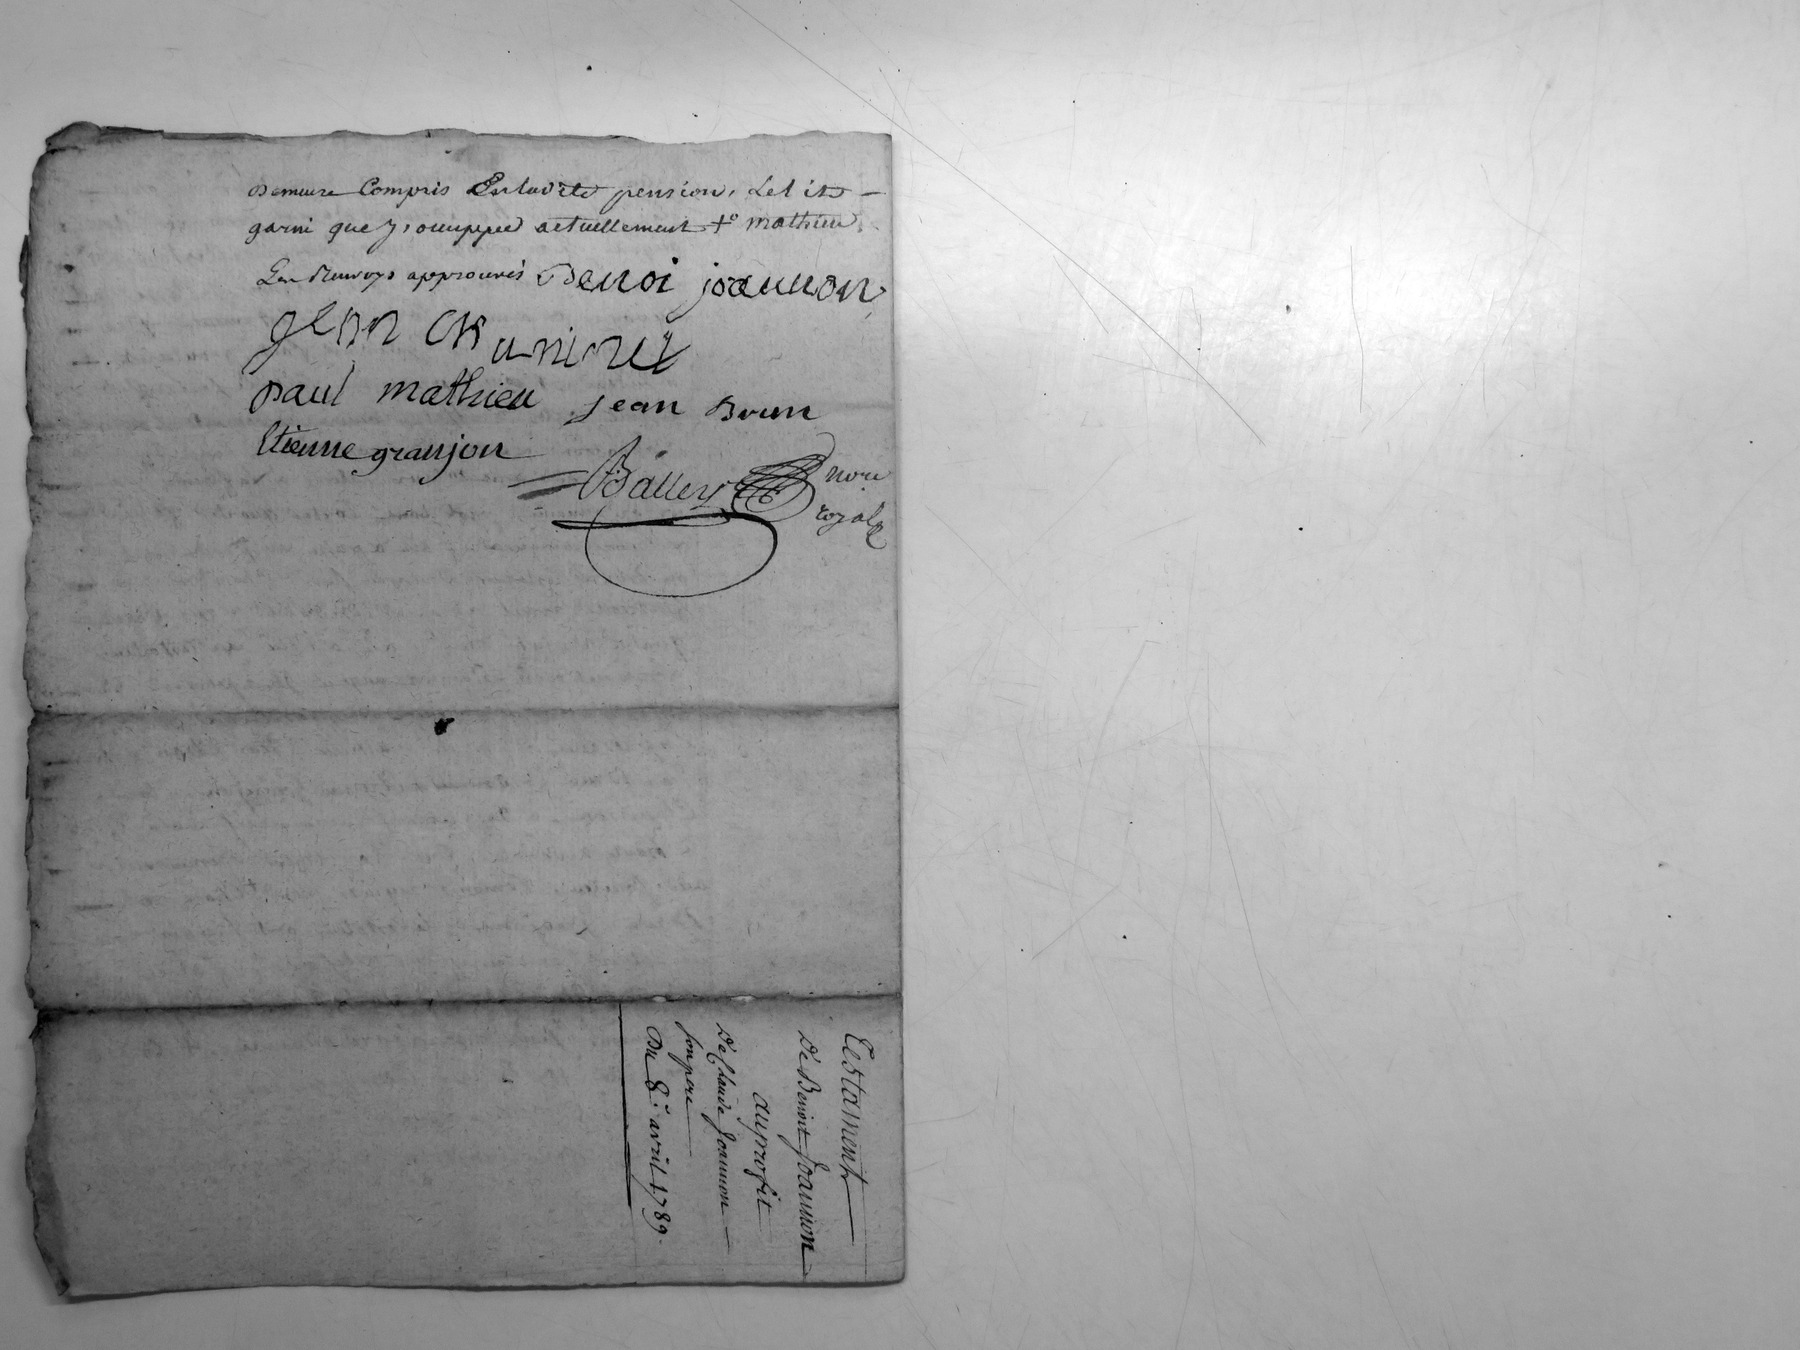 Demeure Compris Enladite pension, Le lit
garni que j'occuppe actuellement +° mathieu
Les Renvoys approuvés Benoi joannon
jean
paul mathieu jean Brun
Etienne granjon
Balley nore
royal
Testament
De Benoit Joannon
au profit
De Claude Joannon
son pere
Du 8.e avril 1789.